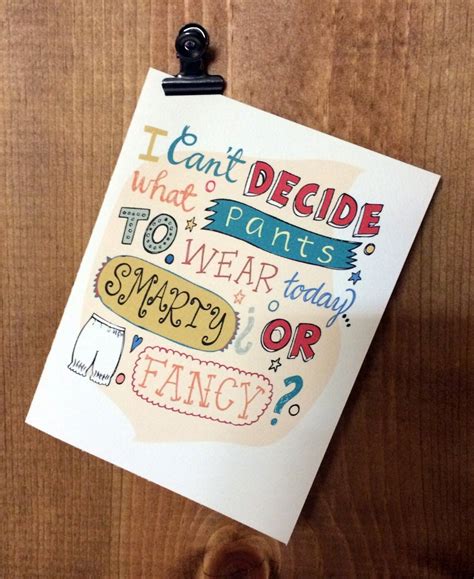 I Can't DECIDE
what pants
TO WEAR today...
SMARTY ¿ OR
FANCY ?